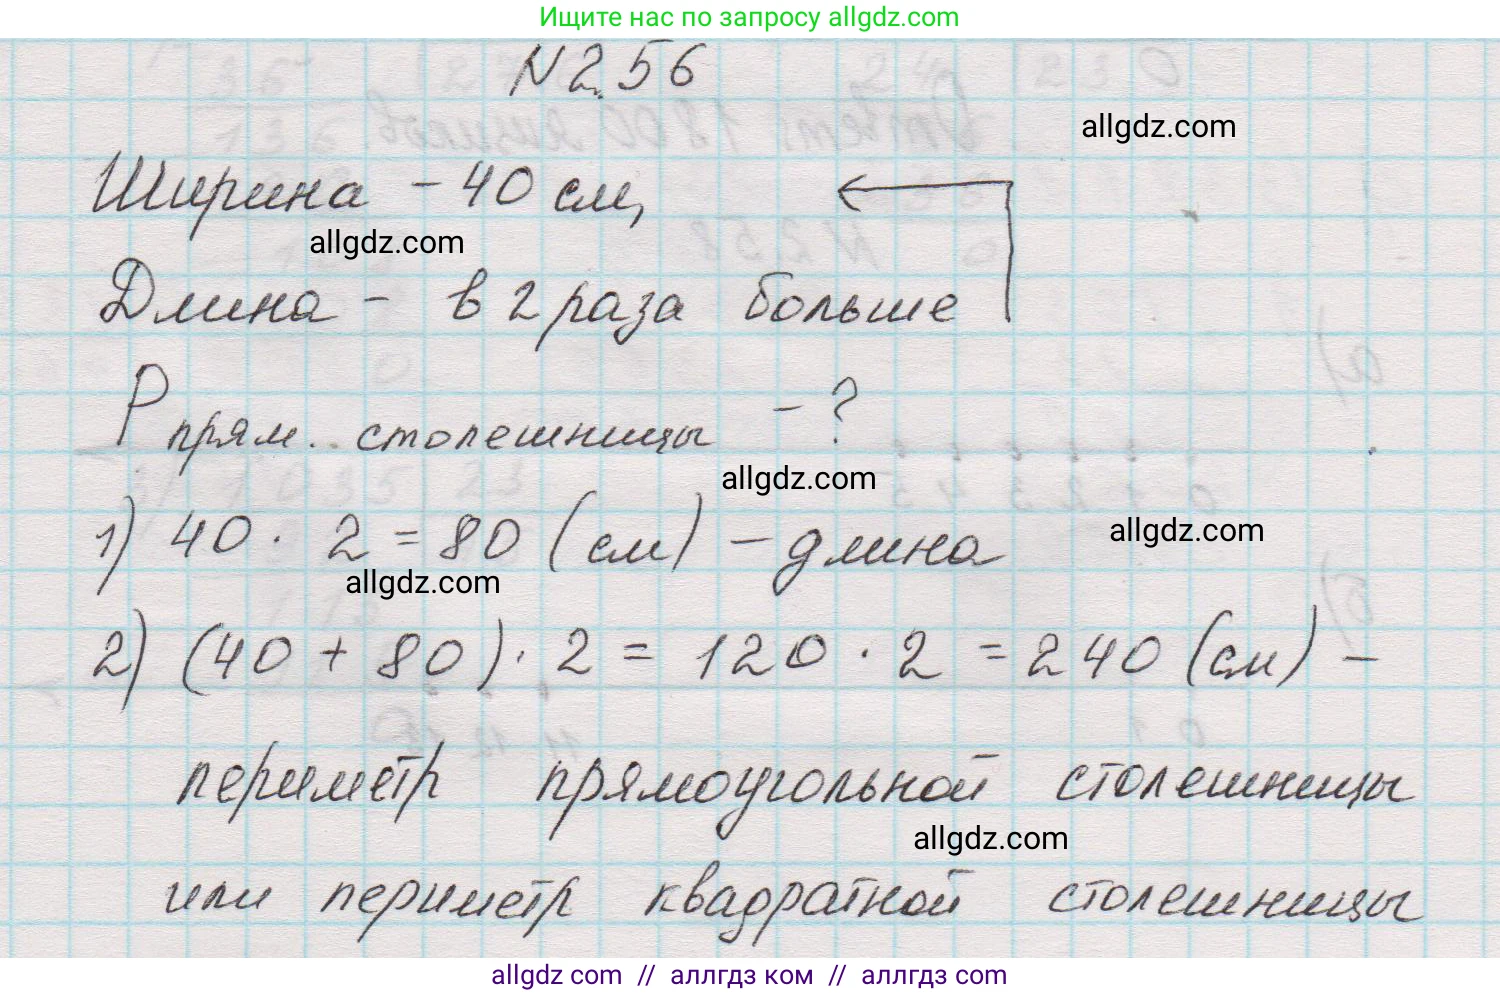 Ищите нас по запросу allgdz.com
N 2.56
allgdz.com
Ширина - 40 см,
allgdz.com
Длина - в 2 раза больше
P прям. столешницы - ?
allgdz.com
1) 40 · 2 = 80 (см) - длина
allgdz.com
allgdz.com
2) (40 + 80) · 2 = 120 · 2 = 240 (см) -
периметр прямоугольной столешницы
allgdz.com
или периметр квадратной столешницы
allgdz com // аллгдз ком // аллгдз com